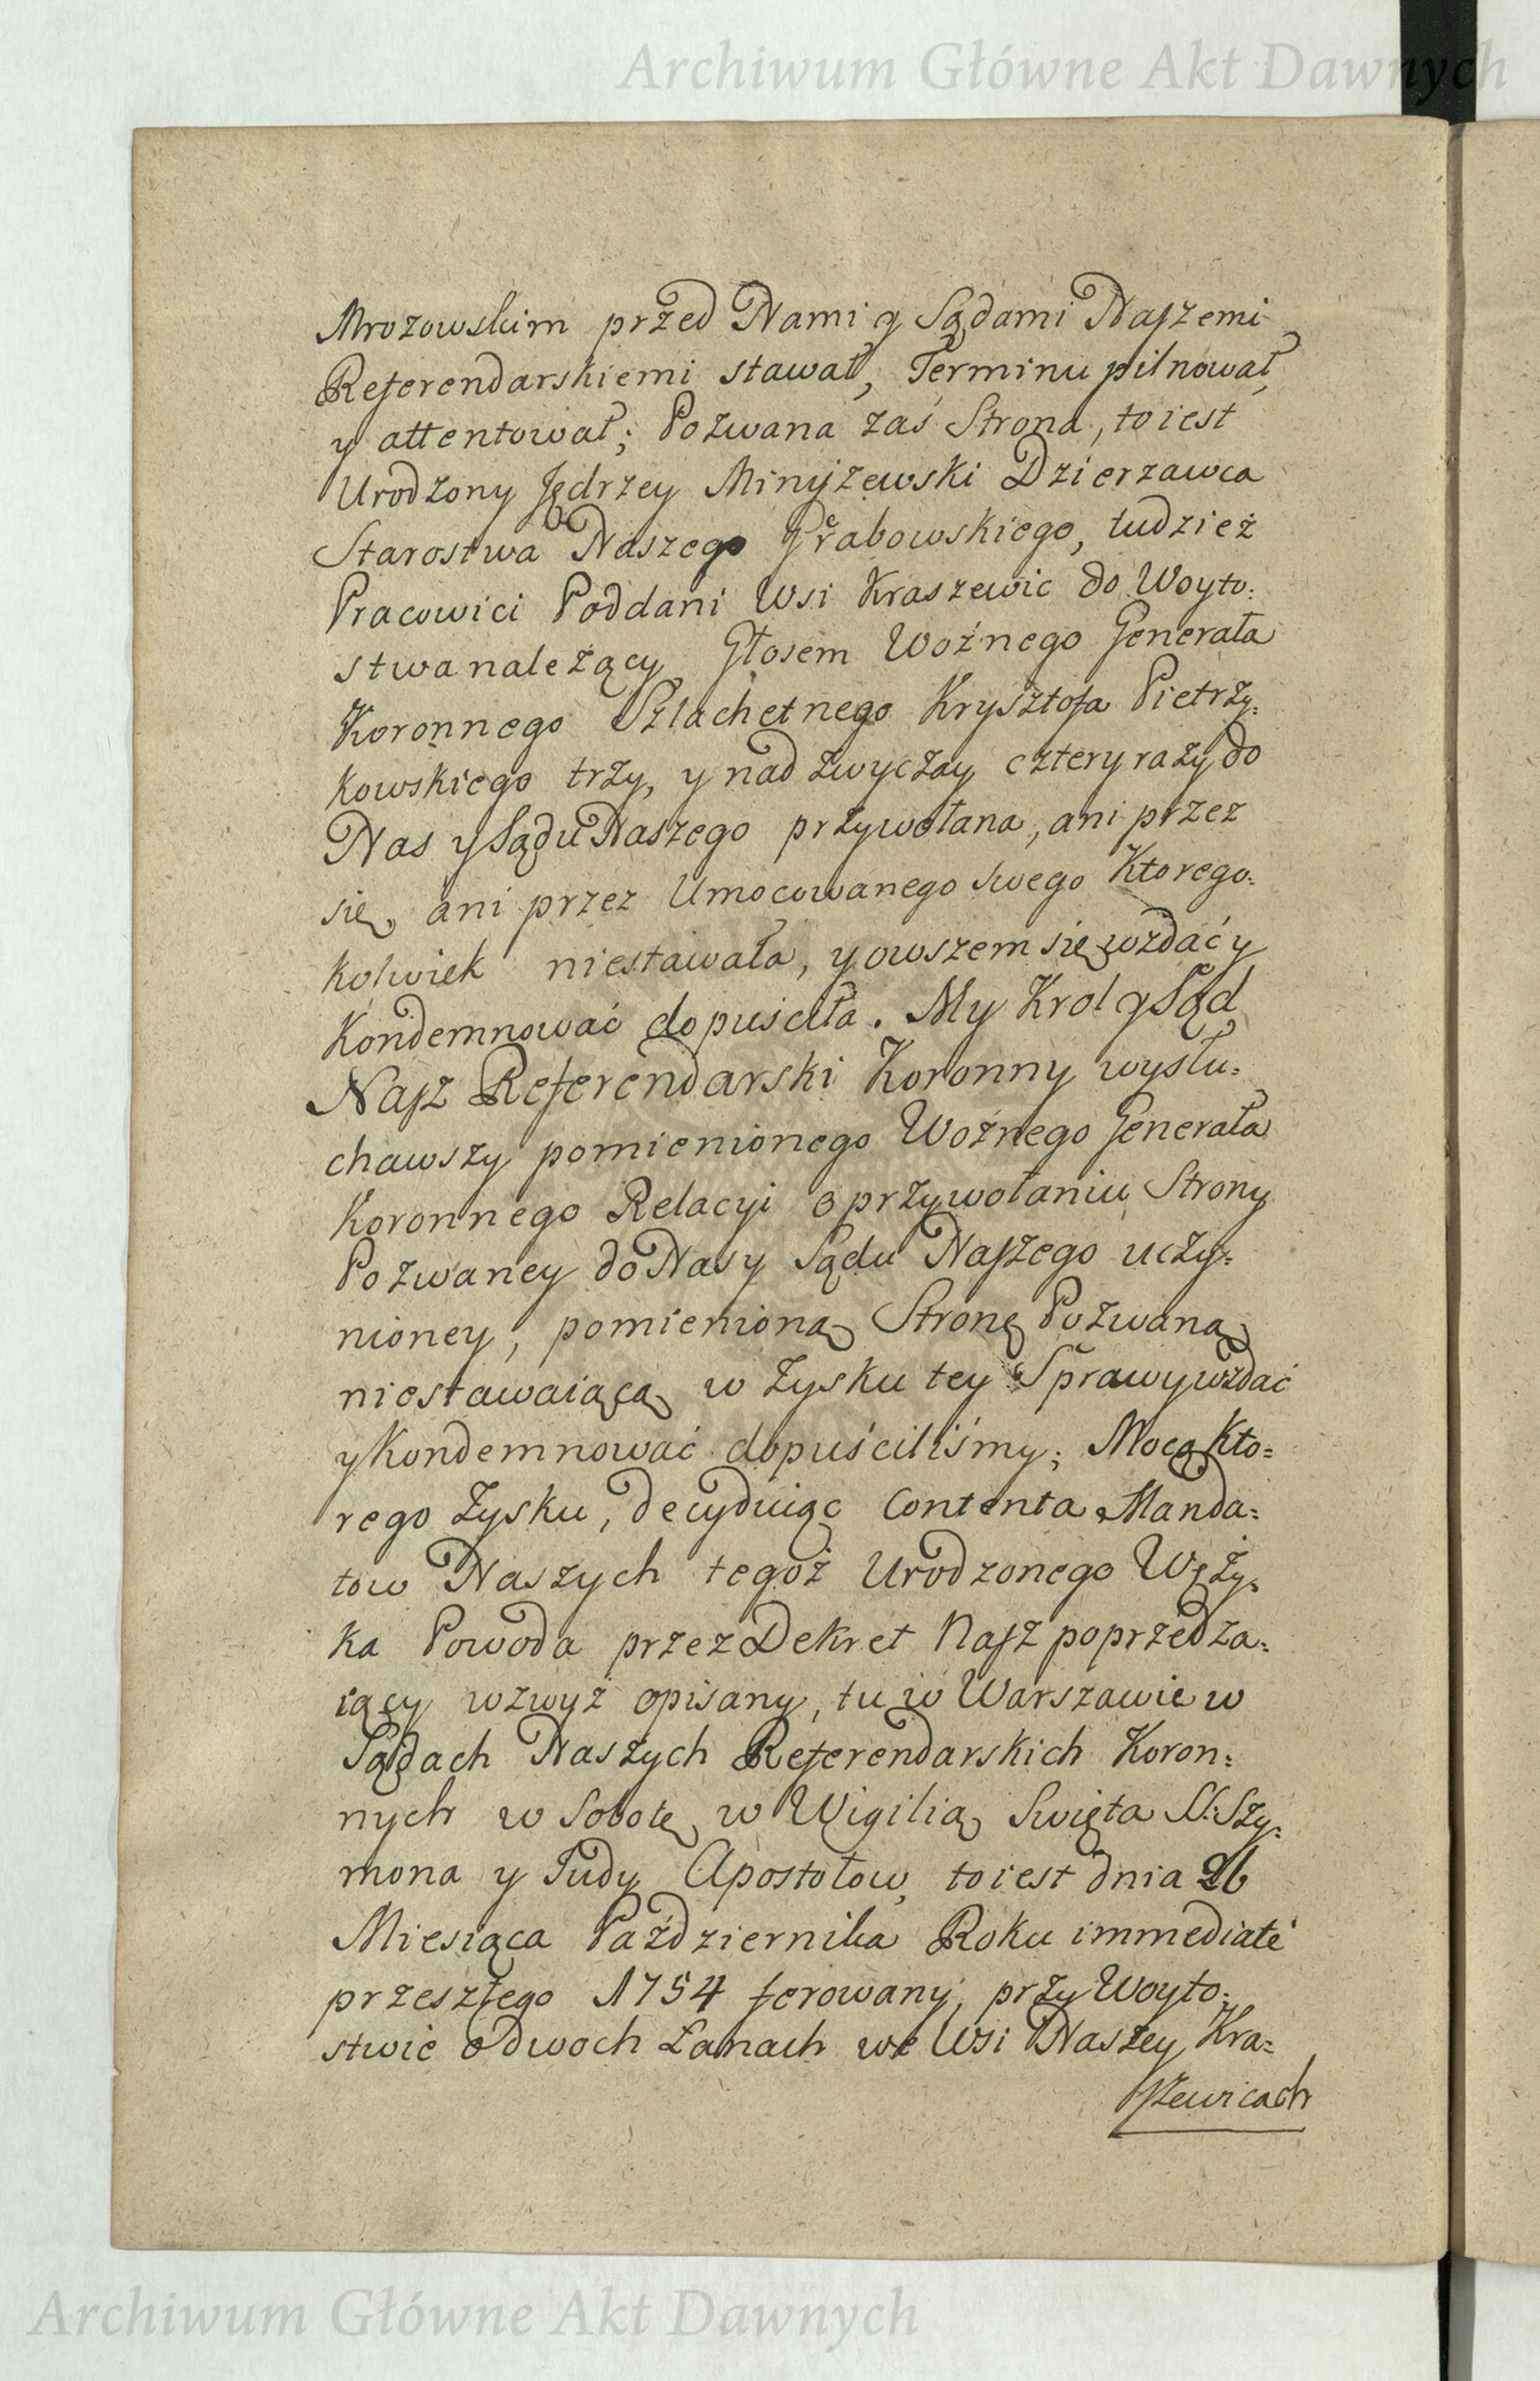 Archiwum Główne Akt Dawnych
Mrozowskim przed Nami y Sądami Naszemi
Referendarskiemi stawał, Terminu pilnował,
y attentował; Pozwana zaś Strona, to iest
Urodzony Jędrzey Minyszewski Dzierzawca
Starostwa Naszego Grabowskiego, tudzież
Pracowici Poddani Wsi Kraszewic do Woyto:
stwa należący, Głosem Woźnego Generała
Koronnego Szlachetnego Krysztofa Pietrzy:
kowskiego trzy, y nad zwyczay cztery razy do
Nas y Sądu Naszego przywołana, ani przez
się, ani przez Umocowanego swego Ktorego:
kolwiek niestawała, y owszem się wzdać y
Kondemnować dopuściła. My Krol y Sąd
Nasz Referendarski Koronny wysłu:
chawszy pomienionego Woźnego Generała
Koronnego Relacyi o przywołaniu Strony
Pozwaney do Nas y Sądu Naszego uczy:
nioney, pomienioną Stronę Pozwaną
niestawaiącą w Zysku tey Sprawy wzdać
y Kondemnować dopuściliśmy; Mocą Kto:
rego Zysku, decyduiąc Contenta Manda:
tow Naszych tegoż Urodzonego Węży:
ka Powoda przez Dekret Nasz poprzedza:
iący wzwyż opisany, tu w Warszawie w
Sądach Naszych Referendarskich Koron:
nych w Sobotę w Wigilią Swięta SS: Szy:
mona y Judy Apostołow, to iest dnia 26
Miesiąca Października Roku immediaté
przeszłego 1754 ferowany, przy Woyto:
stwie o dwoch Łanach we Wsi Naszey Kra:
szewicach
Archiwum Główne Akt Dawnych